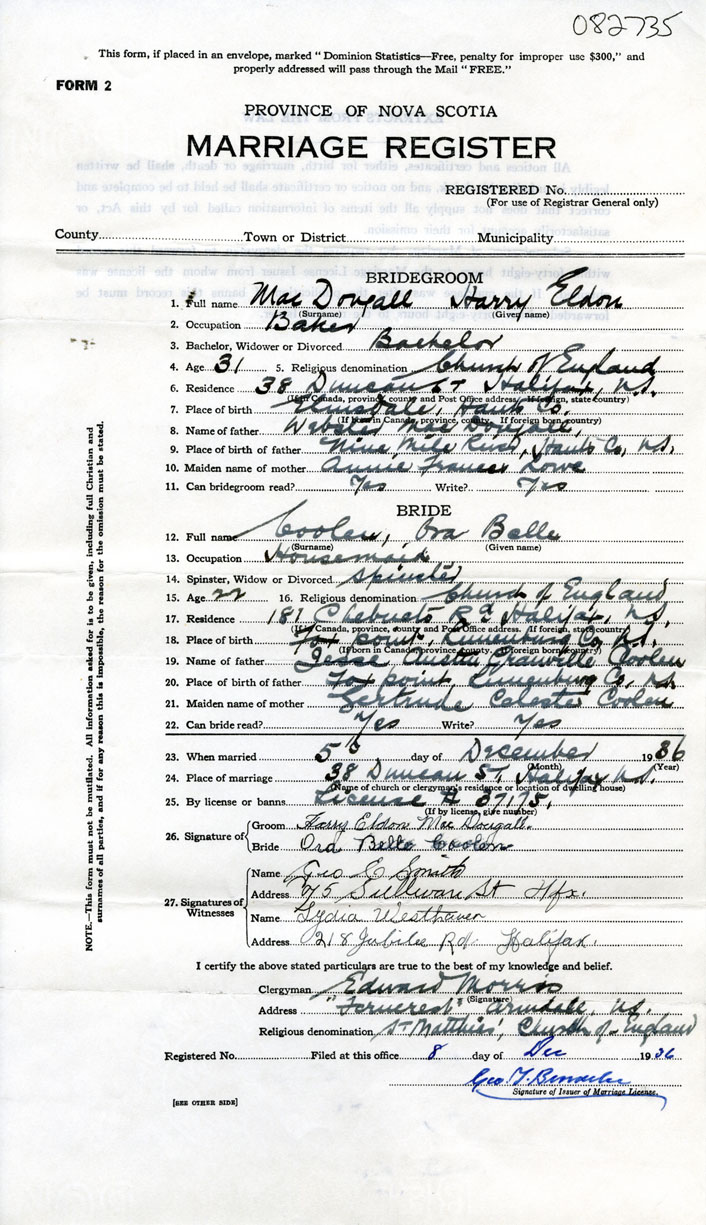 082735
This form, if placed in an envelope, marked "Dominion Statistics—Free, penalty for improper use $300," and
properly addressed will pass through the Mail "FREE."
FORM 2
PROVINCE OF NOVA SCOTIA
MARRIAGE REGISTER
REGISTERED No.
(For use of Registrar General only)
County Town or District Municipality
BRIDEGROOM
1. Full name Mac Dougall Harry Eldon
(Surname) (Given name)
2. Occupation Baker
3. Bachelor, Widower or Divorced Bachelor
4. Age 31 5. Religious denomination Church of England
6. Residence 38 Duncan St Halifax, N.S.
(If in Canada, province, county and Post Office address. If foreign, state country)
7. Place of birth Elmsdale, Hants Co.
(If born in Canada, province, county. If foreign born, country)
8. Name of father Webster Mac Dougall,
9. Place of birth of father Nine Mile River, Hants Co, N.S.
10. Maiden name of mother Annie Frances Lowe
11. Can bridegroom read? Yes Write? Yes
BRIDE
12. Full name Coolen, Ora Belle
(Surname) (Given name)
13. Occupation Housemaid
14. Spinster, Widow or Divorced Spinster
15. Age 22 16. Religious denomination Church of England
17. Residence 187 Chebucto Rd, Halifax, N.S.
(If in Canada, province, county and Post Office address. If foreign, state country)
18. Place of birth Fox point, Lunenburg Co, N.S.
(If born in Canada, province, county. If foreign born, country)
19. Name of father Jesse Austin Granville Coolen
20. Place of birth of father Fox point, Lunenburg Co, N.S.
21. Maiden name of mother Gertrude Celester Coolen
22. Can bride read? Yes Write? Yes
23. When married 5th day of December 1936
(Month) (Year)
24. Place of marriage 38 Duncan St, Halifax N.S.
(Name of church or clergyman's residence or location of dwelling house)
25. By license or banns License # 37175.
(If by license, give number)
26. Signature of Groom Harry Eldon Mac Dougall.
Bride Ora Belle Coolen
27. Signatures of Witnesses Name Geo E Smith
Address 75 Sullivan St Hfx.
Name Lydia Westhaver
Address 218 Jubilee Rd. Halifax.
I certify the above stated particulars are true to the best of my knowledge and belief.
Clergyman Edward Morris
(Signature)
Address "Ferncrest" Armdale, N.S.
Religious denomination St Matthias', Church of England
Registered No. Filed at this office 8 day of Dec 1936
Geo. T.
Signature of Issuer of Marriage License.
[SEE OTHER SIDE]
NOTE.—This form must not be mutilated. All information asked for is to be given, including full Christian and
surnames of all parties, and if for any reason this is impossible, the reason for the omission must be stated.